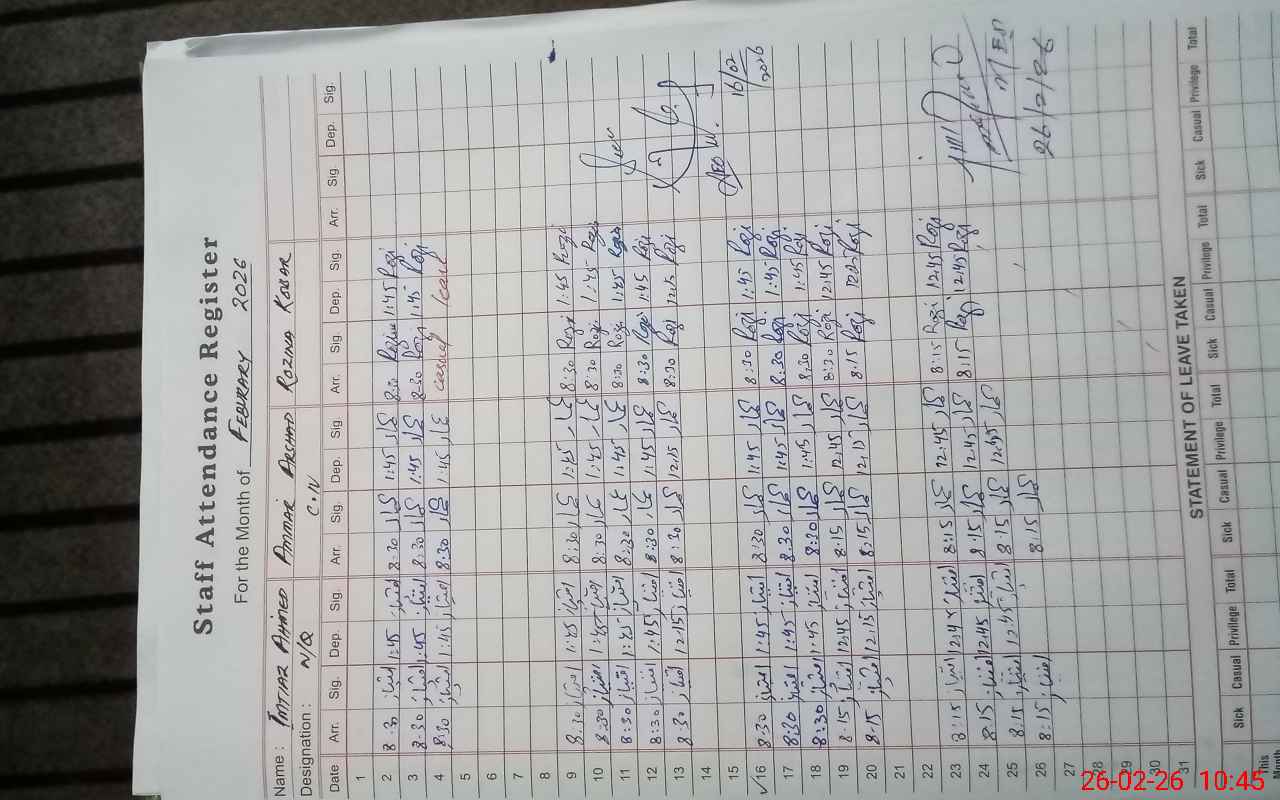 Staff Attendance Register
For the Month of FEBURARY 2026
Name : IMTIAZ AHMED AMMAR ARSHAD ROZINA KOUSAR
Designation : N/Q C.N
Date Arr. Sig. Dep. Sig. Arr. Sig. Dep. Sig Arr. Sig Dep. Sig. Arr. Sig Dep. Sig.
1
2 8:30 امتیاز 1:45 امتیاز 8:30 1:45 8:30 Rozina 1:45 Rozi
3 8:30 امتیاز 1:45 امتیاز 8:30 1:45 8:30 Rozi 1:45 Rozi
4 8:30 امتیاز 1:45 امتیاز 8:30 1:45 casual leave
5
6
7
8
9 8:30 امتیاز 1:45 امتیاز 8:30 1:45 8:30 Rozi 1:45 Rozi
10 8:30 امتیاز 1:45 امتیاز 8:30 1:45 8:30 Rozi 1:45 Rozi
11 8:30 امتیاز 1:45 امتیاز 8:30 1:45 8:30 Rozi 1:45 Rozi
12 8:30 امتیاز 1:45 امتیاز 8:30 1:45 8:30 Rozi 1:45 Rozi
13 8:30 امتیاز 12:15 امتیاز 8:30 12:15 8:30 Rozi 12:15 Rozi
14
15 16/02/2026
16 8:30 امتیاز 1:45 امتیاز 8:30 1:45 8:30 Rozi 1:45 Rozi
17 8:30 امتیاز 1:45 امتیاز 8:30 1:45 8:30 Rozi 1:45 Rozi
18 8:30 امتیاز 1:45 امتیاز 8:30 1:45 8:30 Rozi 1:45 Rozi
19 8:15 امتیاز 12:45 امتیاز 8:15 12:45 8:30 Rozi 12:45 Rozi
20 8:15 امتیاز 12:15 امتیاز 8:15 12:15 8:15 Rozi Rozi
21
22 8:15 Rozi 12:45 Rozi
23 8:15 امتیاز امتیاز 8:15 12:45 8:15 Rozi 12:45 Rozi
24 8:15 امتیاز 12:45 امتیاز 8:15 12:45
25 8:15 امتیاز 12:45 امتیاز 8:15 12:45
26 8:15 امتیاز 8:15 26/2/26
27
28
29
30
31
STATEMENT OF LEAVE TAKEN
Sick Casual Privilege Total Sick Casual Privilege Total Sick Casual Privilege Total Sick Casual Privilege Total
This Month
26-02-26 10:45